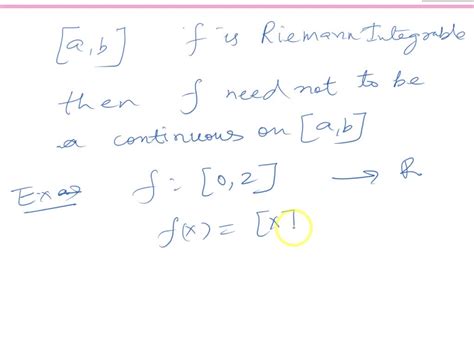 [a,b] f is Riemann Integrable
then f need not to be
a continuous on [a,b]
Ex f : [0,2] → R
f(x) = [x]